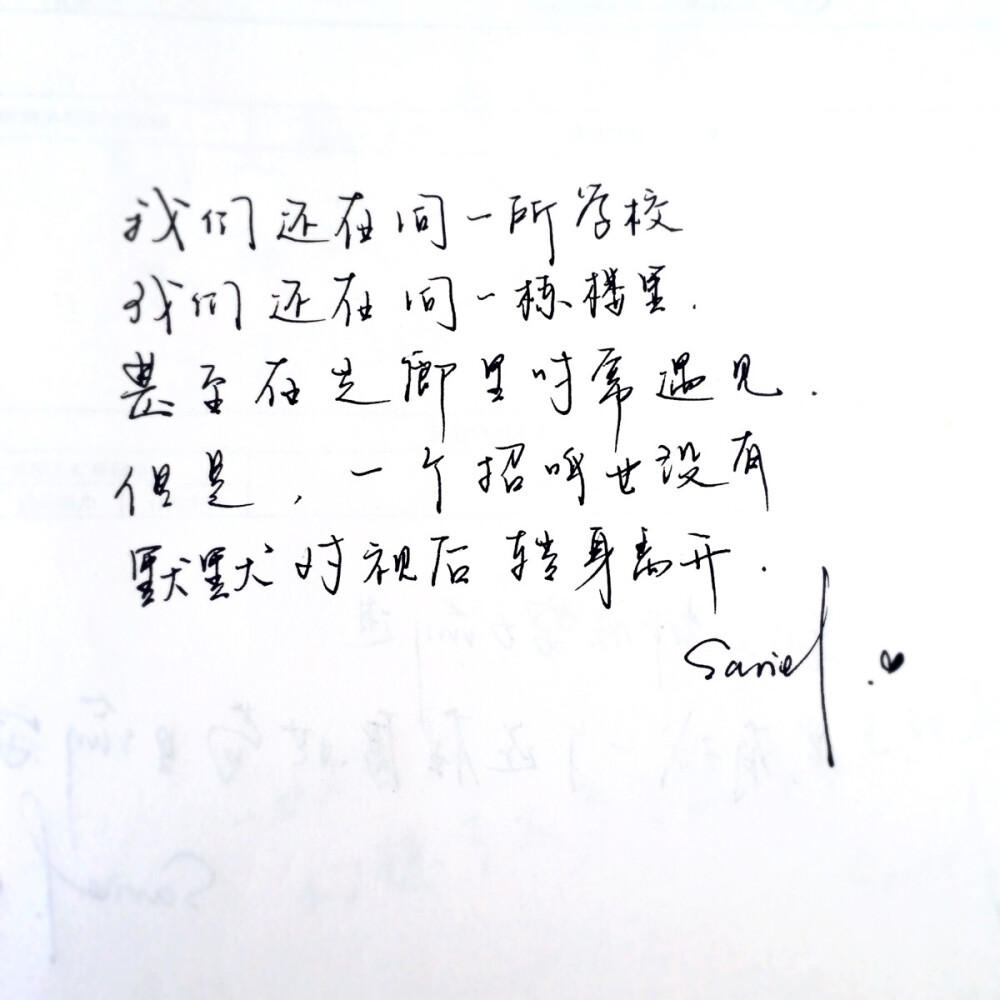 我们还在同一所学校
我们还在同一栋楼里.
甚至在走廊里时常遇见.
但是,一个招呼也没有
默默对视后转身离开.
Sariel.